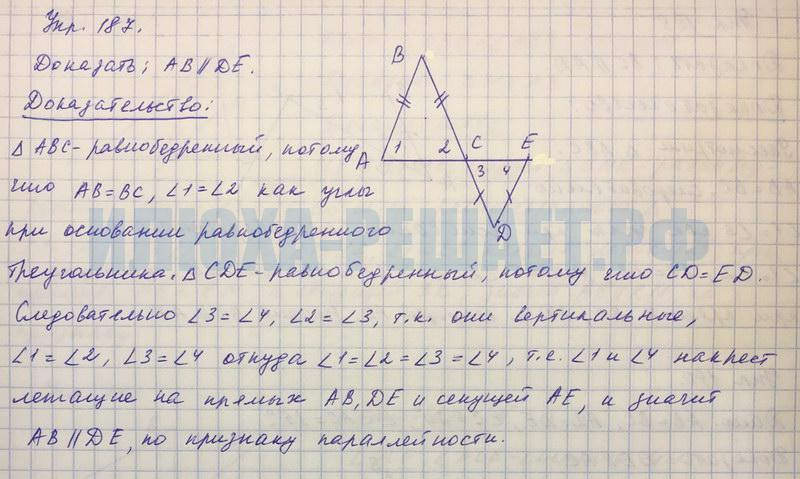 Упр. 187.
Доказать: AB ∥ DE.
Доказательство:
Δ ABC - равнобедренный, потому
что AB = BC, ∠1 = ∠2 как углы
при основании равнобедренного
треугольника. Δ CDE - равнобедренный, потому что CD = ED.
Следовательно ∠3 = ∠4, ∠2 = ∠3, т.к. они вертикальные,
∠1 = ∠2, ∠3 = ∠4 откуда ∠1 = ∠2 = ∠3 = ∠4, т.е. ∠1 и ∠4 накрест
лежащие на прямых AB, DE и секущей AE, и значит
AB ∥ DE, по признаку параллейности.
B
A
1
2
C
E
3
4
D
ИЛЮХА-РЕШАЕТ.РФ